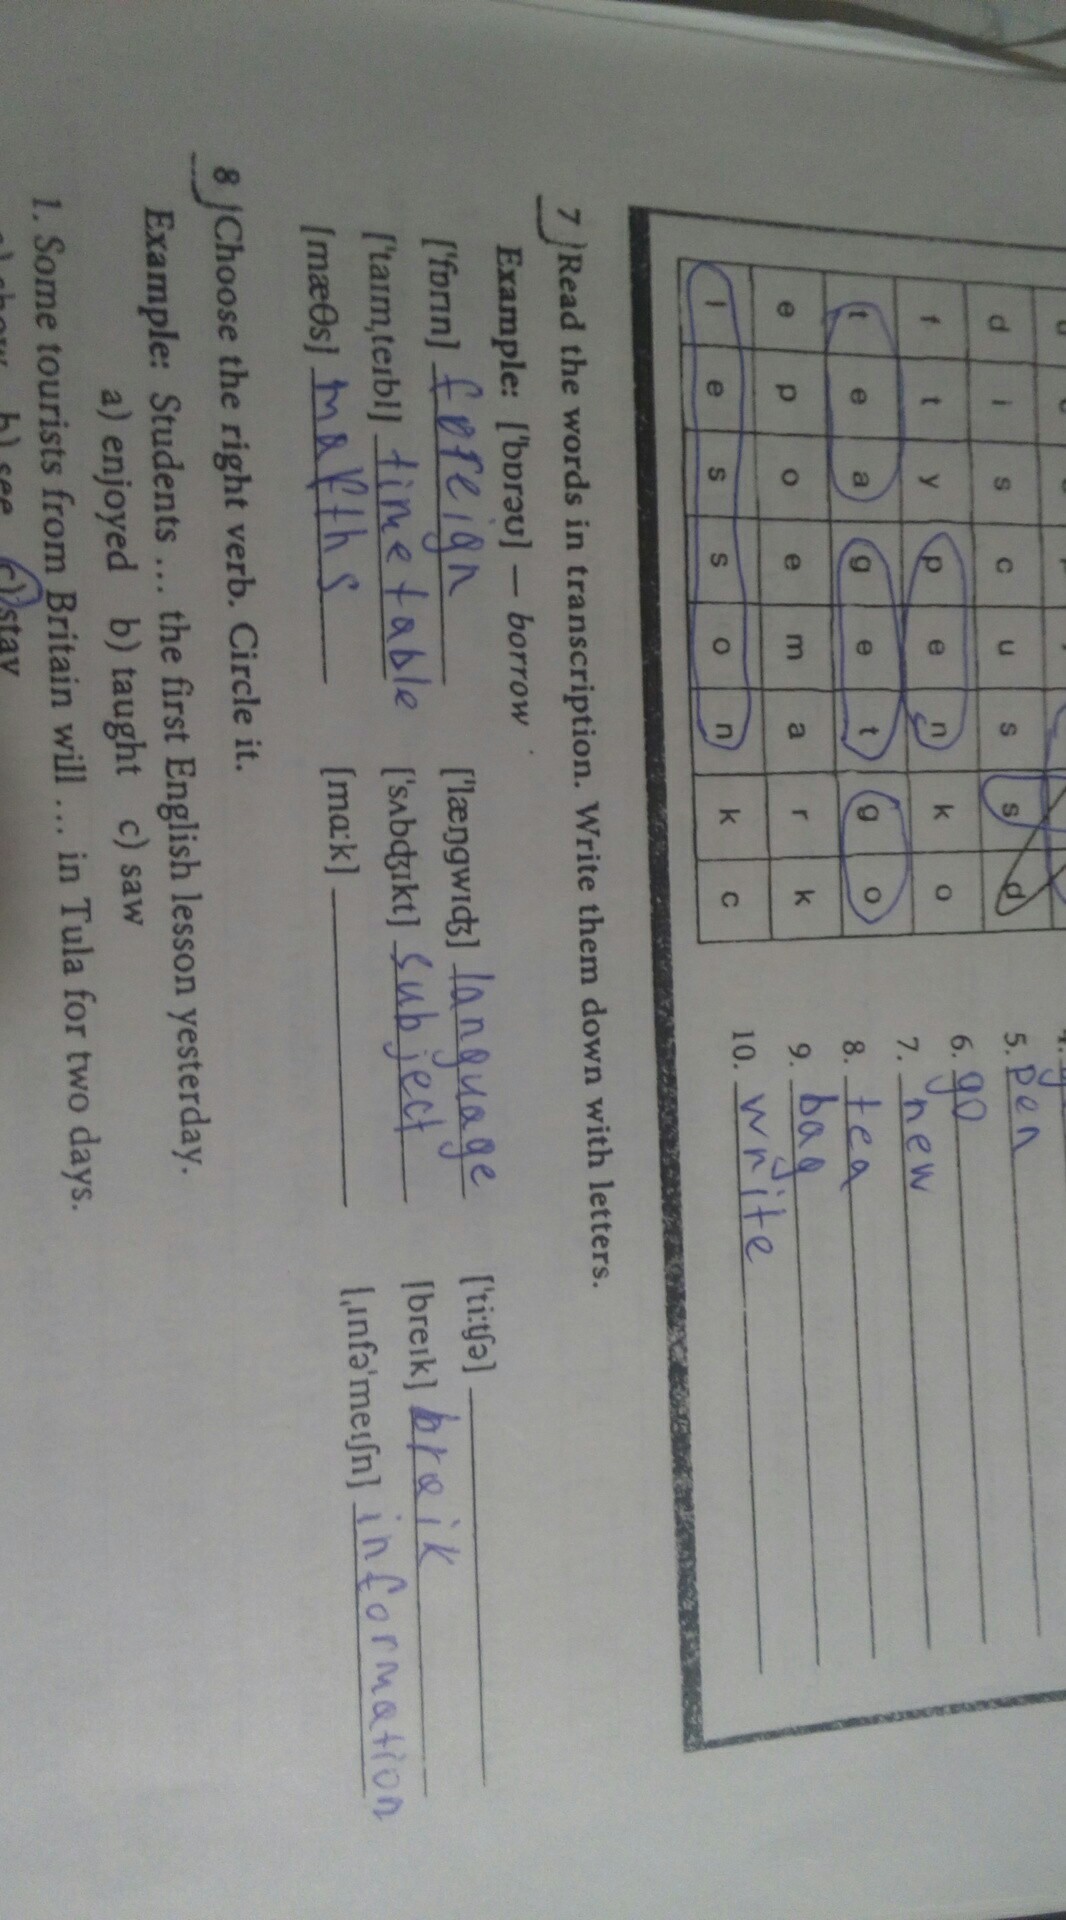 d i s c u s s d
5. pen
f t y p e n k o
6. go
7. new
t e a g e t g o
8. tea
e p o e m a r k
9. bag
l e s s o n k c
10. write
7 Read the words in transcription. Write them down with letters.
Example: [ˈbɒrəʊ] — borrow
[ˈfɒrɪn] foreign [ˈlæŋgwɪʤ] language [ˈtiːtʃə]
[ˈtaɪmˌteɪbl] timetable [ˈsʌbʤɪkt] subject [breɪk] braik
[mæθs] [mɑːk] [ˌɪnfəˈmeɪʃn] information
8 Choose the right verb. Circle it.
Example: Students ... the first English lesson yesterday.
a) enjoyed b) taught c) saw
1. Some tourists from Britain will ... in Tula for two days.
b) see c) stay